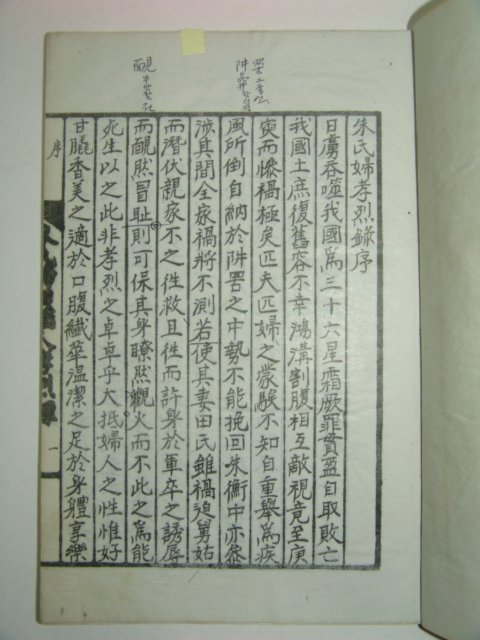 罟 그물고
阱=穽 함정정
靦
朱氏婦孝烈錄序
日虜呑噬我國爲三十六星霜厥罪貫盈自取敗亡
我國土庶復舊容不幸鴻溝割腹相互敵視竟至庚
寅而慘禍極矣匹夫匹婦之蒙騃不知自重擧爲疾
風所倒自納於阱罟之中勢不能挽回朱衡中亦
涉其間全家禍將不測若使其妻田氏雖禍迫舅姑
而潛伏親家不之徃救且徃而許身於軍卒之誘辱
而靦然冒耻則可保其身瞭然觀火而不此之爲能
死生以之此非孝烈之卓卓乎大抵婦人之性惟好
甘膬香美之適於口腹纖華温潔之足於身體享樂
序
一